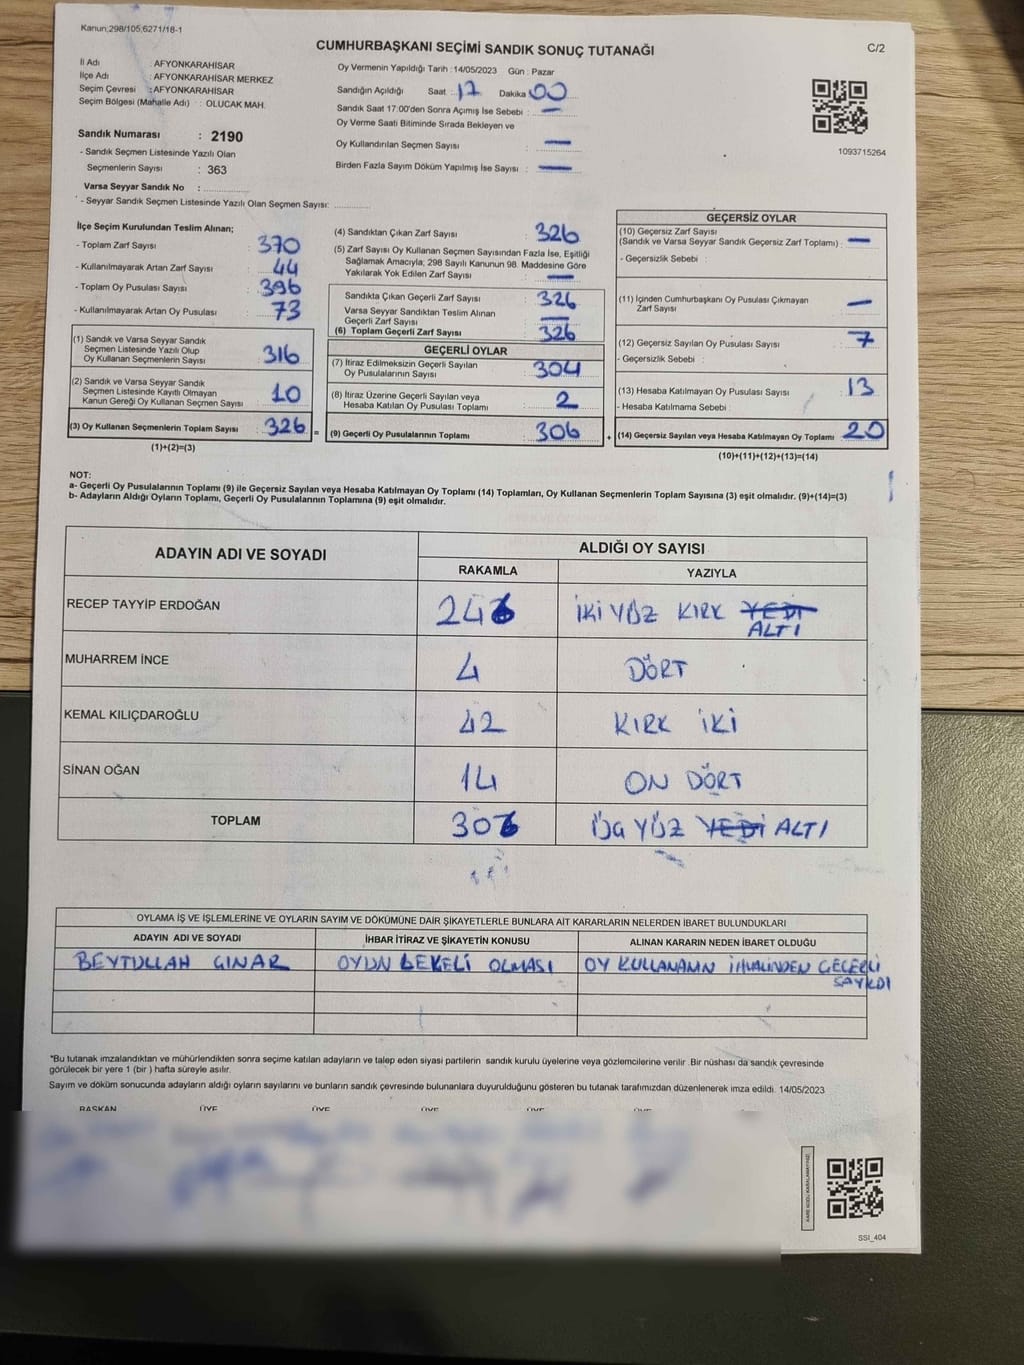 Kanun;298/105,6271/18-1
CUMHURBAŞKANI SEÇİMİ SANDIK SONUÇ TUTANAĞI
C/2
İl Adı : AFYONKARAHİSAR
İlçe Adı : AFYONKARAHİSAR MERKEZ
Seçim Çevresi : AFYONKARAHİSAR
Seçim Bölgesi (Mahalle Adı) : OLUCAK MAH.
Sandık Numarası : 2190
- Sandık Seçmen Listesinde Yazılı Olan
Seçmenlerin Sayısı : 363
Varsa Seyyar Sandık No :
- Seyyar Sandık Seçmen Listesinde Yazılı Olan Seçmen Sayısı:
Oy Vermenin Yapıldığı Tarih :14/05/2023 Gün : Pazar
Sandığın Açıldığı Saat : 17 Dakika 00
Sandık Saat 17:00'den Sonra Açımış İse Sebebi : —
Oy Verme Saati Bitiminde Sırada Bekleyen ve
Oy Kullandırılan Seçmen Sayısı : —
Birden Fazla Sayım Döküm Yapılmış İse Sayısı : —
1093715264
İlçe Seçim Kurulundan Teslim Alınan;
- Toplam Zarf Sayısı : 370
- Kullanılmayarak Artan Zarf Sayısı : 44
- Toplam Oy Pusulası Sayısı : 396
- Kullanılmayarak Artan Oy Pusulası : 73
(1) Sandık ve Varsa Seyyar Sandık
Seçmen Listesinde Yazılı Olup
Oy Kullanan Seçmenlerin Sayısı : 316
(2) Sandık ve Varsa Seyyar Sandık
Seçmen Listesinde Kayıtlı Olmayan
Kanun Gereği Oy Kullanan Seçmen Sayısı : 10
(3) Oy Kullanan Seçmenlerin Toplam Sayısı : 326
(1)+(2)=(3)
(4) Sandıktan Çıkan Zarf Sayısı : 326
(5) Zarf Sayısı Oy Kullanan Seçmen Sayısından Fazla İse, Eşitliği
Sağlamak Amacıyla; 298 Sayılı Kanunun 98. Maddesine Göre
Yakılarak Yok Edilen Zarf Sayısı : —
Sandıkta Çıkan Geçerli Zarf Sayısı : 326
Varsa Seyyar Sandıktan Teslim Alınan
Geçerli Zarf Sayısı : —
(6) Toplam Geçerli Zarf Sayısı : 326
GEÇERLİ OYLAR
(7) İtiraz Edilmeksizin Geçerli Sayılan
Oy Pusulalarının Sayısı : 304
(8) İtiraz Üzerine Geçerli Sayılan veya
Hesaba Katılan Oy Pusulası Toplamı : 2
= (9) Geçerli Oy Pusulalarının Toplamı : 306
GEÇERSİZ OYLAR
(10) Geçersiz Zarf Sayısı
(Sandık ve Varsa Seyyar Sandık Geçersiz Zarf Toplamı) : —
- Geçersizlik Sebebi :
(11) İçinden Cumhurbaşkanı Oy Pusulası Çıkmayan
Zarf Sayısı : —
(12) Geçersiz Sayılan Oy Pusulası Sayısı : 7
- Geçersizlik Sebebi :
(13) Hesaba Katılmayan Oy Pusulası Sayısı : 13
- Hesaba Katılmama Sebebi :
+ (14) Geçersiz Sayılan veya Hesaba Katılmayan Oy Toplamı : 20
(10)+(11)+(12)+(13)=(14)
NOT:
a- Geçerli Oy Pusulalarının Toplamı (9) ile Geçersiz Sayılan veya Hesaba Katılmayan Oy Toplamı (14) Toplamları, Oy Kullanan Seçmenlerin Toplam Sayısına (3) eşit olmalıdır. (9)+(14)=(3)
b- Adayların Aldığı Oyların Toplamı, Geçerli Oy Pusulalarının Toplamına (9) eşit olmalıdır.
ADAYIN ADI VE SOYADI
ALDIĞI OY SAYISI
RAKAMLA YAZIYLA
RECEP TAYYİP ERDOĞAN 246 İKİ YÜZ KIRK YEDİ
ALTI
MUHARREM İNCE 4 DÖRT
KEMAL KILIÇDAROĞLU 42 KIRK İKİ
SİNAN OĞAN 14 ON DÖRT
TOPLAM 306 ÜÇ YÜZ YEDİ ALTI
OYLAMA İŞ VE İŞLEMLERİNE VE OYLARIN SAYIM VE DÖKÜMÜNE DAİR ŞİKAYETLERLE BUNLARA AİT KARARLARIN NELERDEN İBARET BULUNDUKLARI
ADAYIN ADI VE SOYADI İHBAR İTİRAZ VE ŞİKAYETİN KONUSU ALINAN KARARIN NEDEN İBARET OLDUĞU
BEYTULLAH ÇINAR OYUN LEKELİ OLMASI OY KULLANANIN GEÇERLİ
SAYILDI
*Bu tutanak imzalandıktan ve mühürlendikten sonra seçime katılan adayların ve talep eden siyasi partilerin sandık kurulu üyelerine veya gözlemcilerine verilir. Bir nüshası da sandık çevresinde
görülecek bir yere 1 (bir ) hafta süreyle asılır.
Sayım ve döküm sonucunda adayların aldığı oyların sayılarını ve bunların sandık çevresinde bulunanlara duyurulduğunu gösteren bu tutanak tarafımızdan düzenlenerek imza edildi. 14/05/2023
BAŞKAN ÜYE ÜYE ÜYE ÜYE ÜYE
KARE KODU KARALAMAYINIZ!
SSİ_404